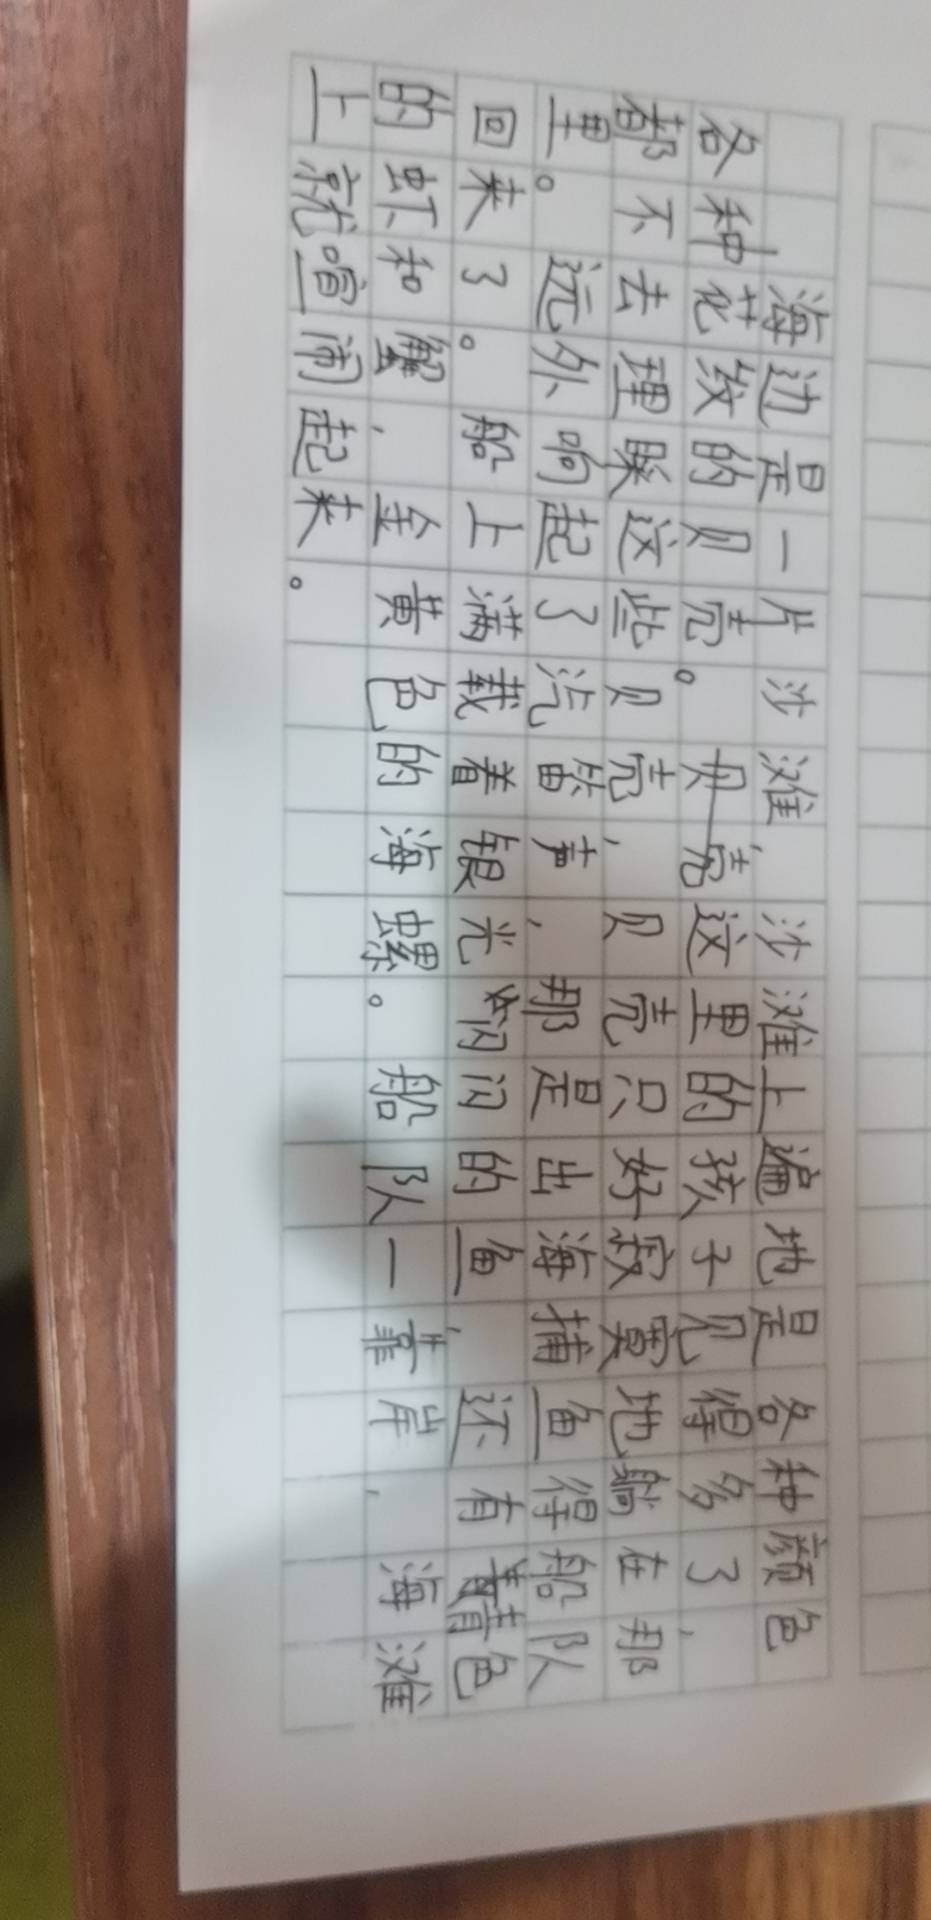 海边是一片沙滩，沙滩上遍地是各种颜色
各种花纹的贝壳。贝壳这里的孩子见得多了，
都不去理睬这些贝壳，贝壳只好寂寞地躺在那
里。远外响起了汽笛声，那是出海捕鱼得船队
回来了。船上满载着银光闪闪的鱼，还有青色
的虾和蟹，金黄色的海螺。船队一靠岸，海滩
上就喧闹起来。